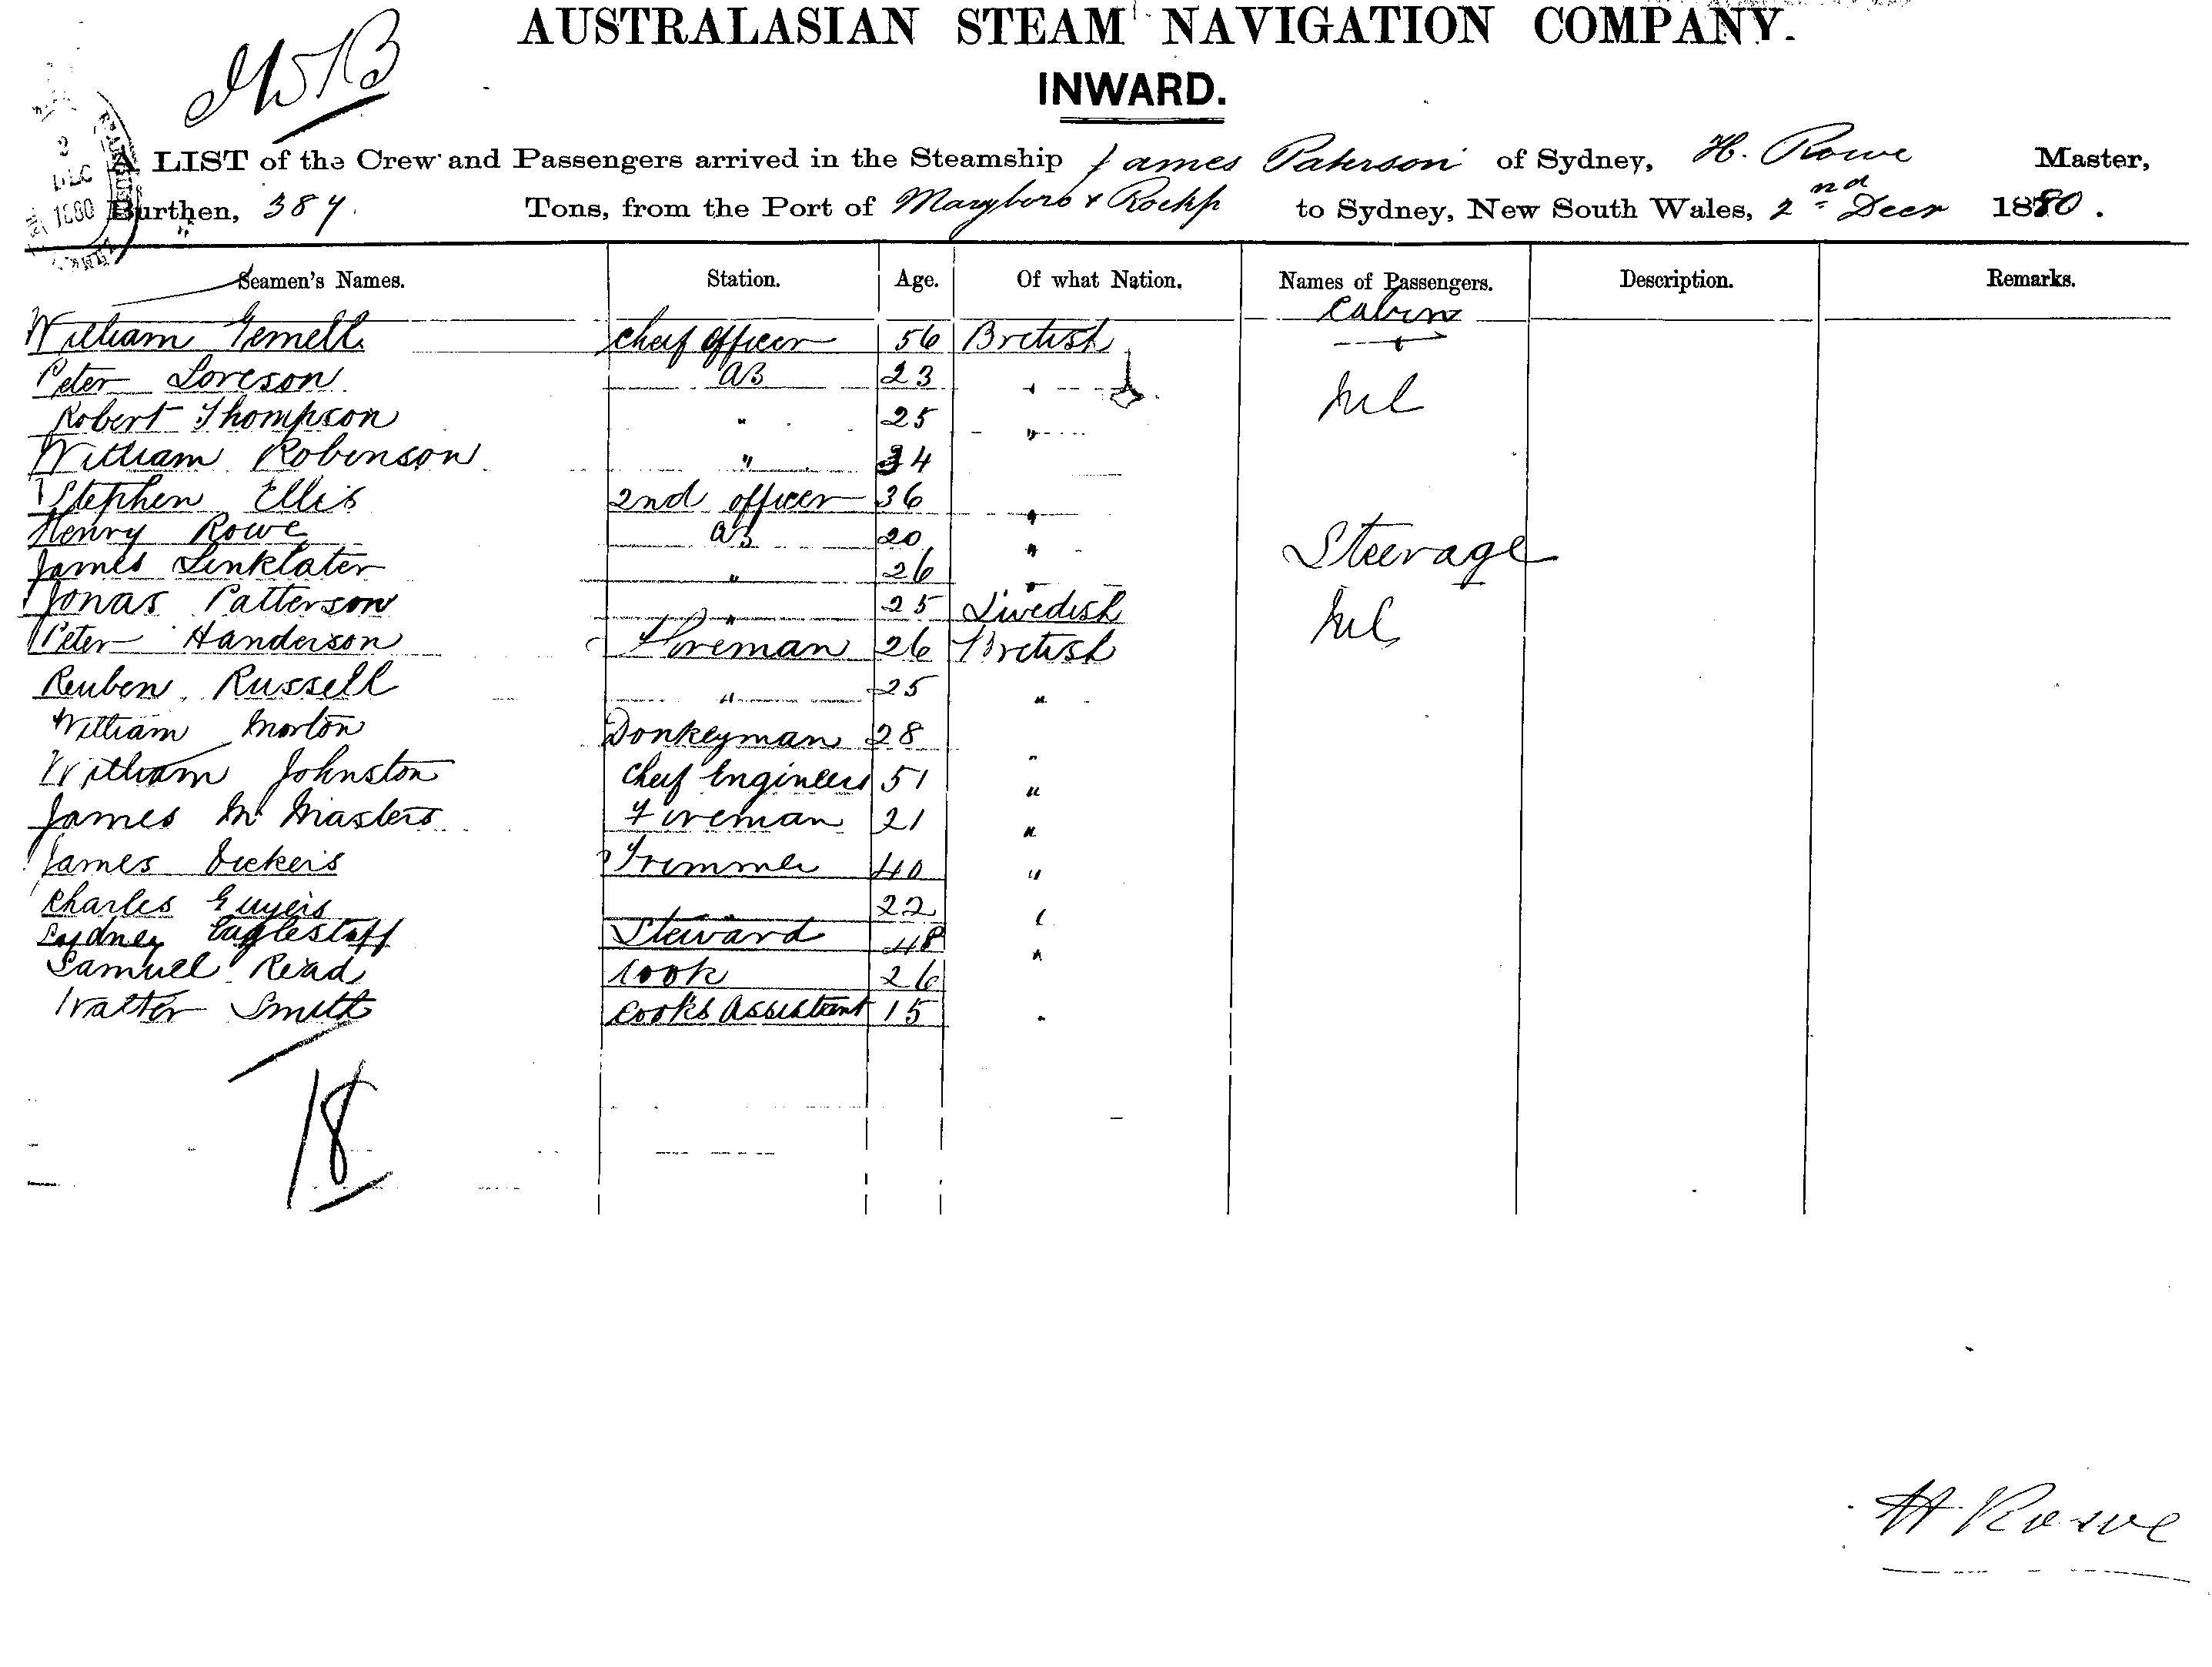 AUSTRALASIAN STEAM NAVIGATION COMPANY.
INWARD.
A LIST of the Crew and Passengers arrived in the Steamship James Paterson of Sydney, H. Rowe Master,
Burthen, 387. Tons, from the Port of Maryboro & Rockp to Sydney, New South Wales, 2nd Decr 1880.
2
DEC
1880
Seamen's Names. Station. Age. Of what Nation. Names of Passengers. Description. Remarks.
Cabin
William Gemell Cheif Officer 56 British
Peter Loreson AB 23 "
Nil
Robert Thompson " 25 "
William Robinson " 34
Stephen Ellis 2nd officer 36 "
Henry Rowe AB 20 "
Steerage
James Linklater " 26 "
Jonas Patterson " 25 Swedish
Nil
Peter Handerson Fireman 26 British
Reuben Russell " 25 "
William Morton Donkeyman 28 "
William Johnston Cheif Engineer 51 "
James Mc Masters Fireman 21 "
James Vickers Trimmer 40 "
Charles Guyers " 22 "
Sydney Eaglestaff Steward 48 "
Samuel Read Cook 26
Walter Smith Cooks Assistant 15 "
18
H Rowe